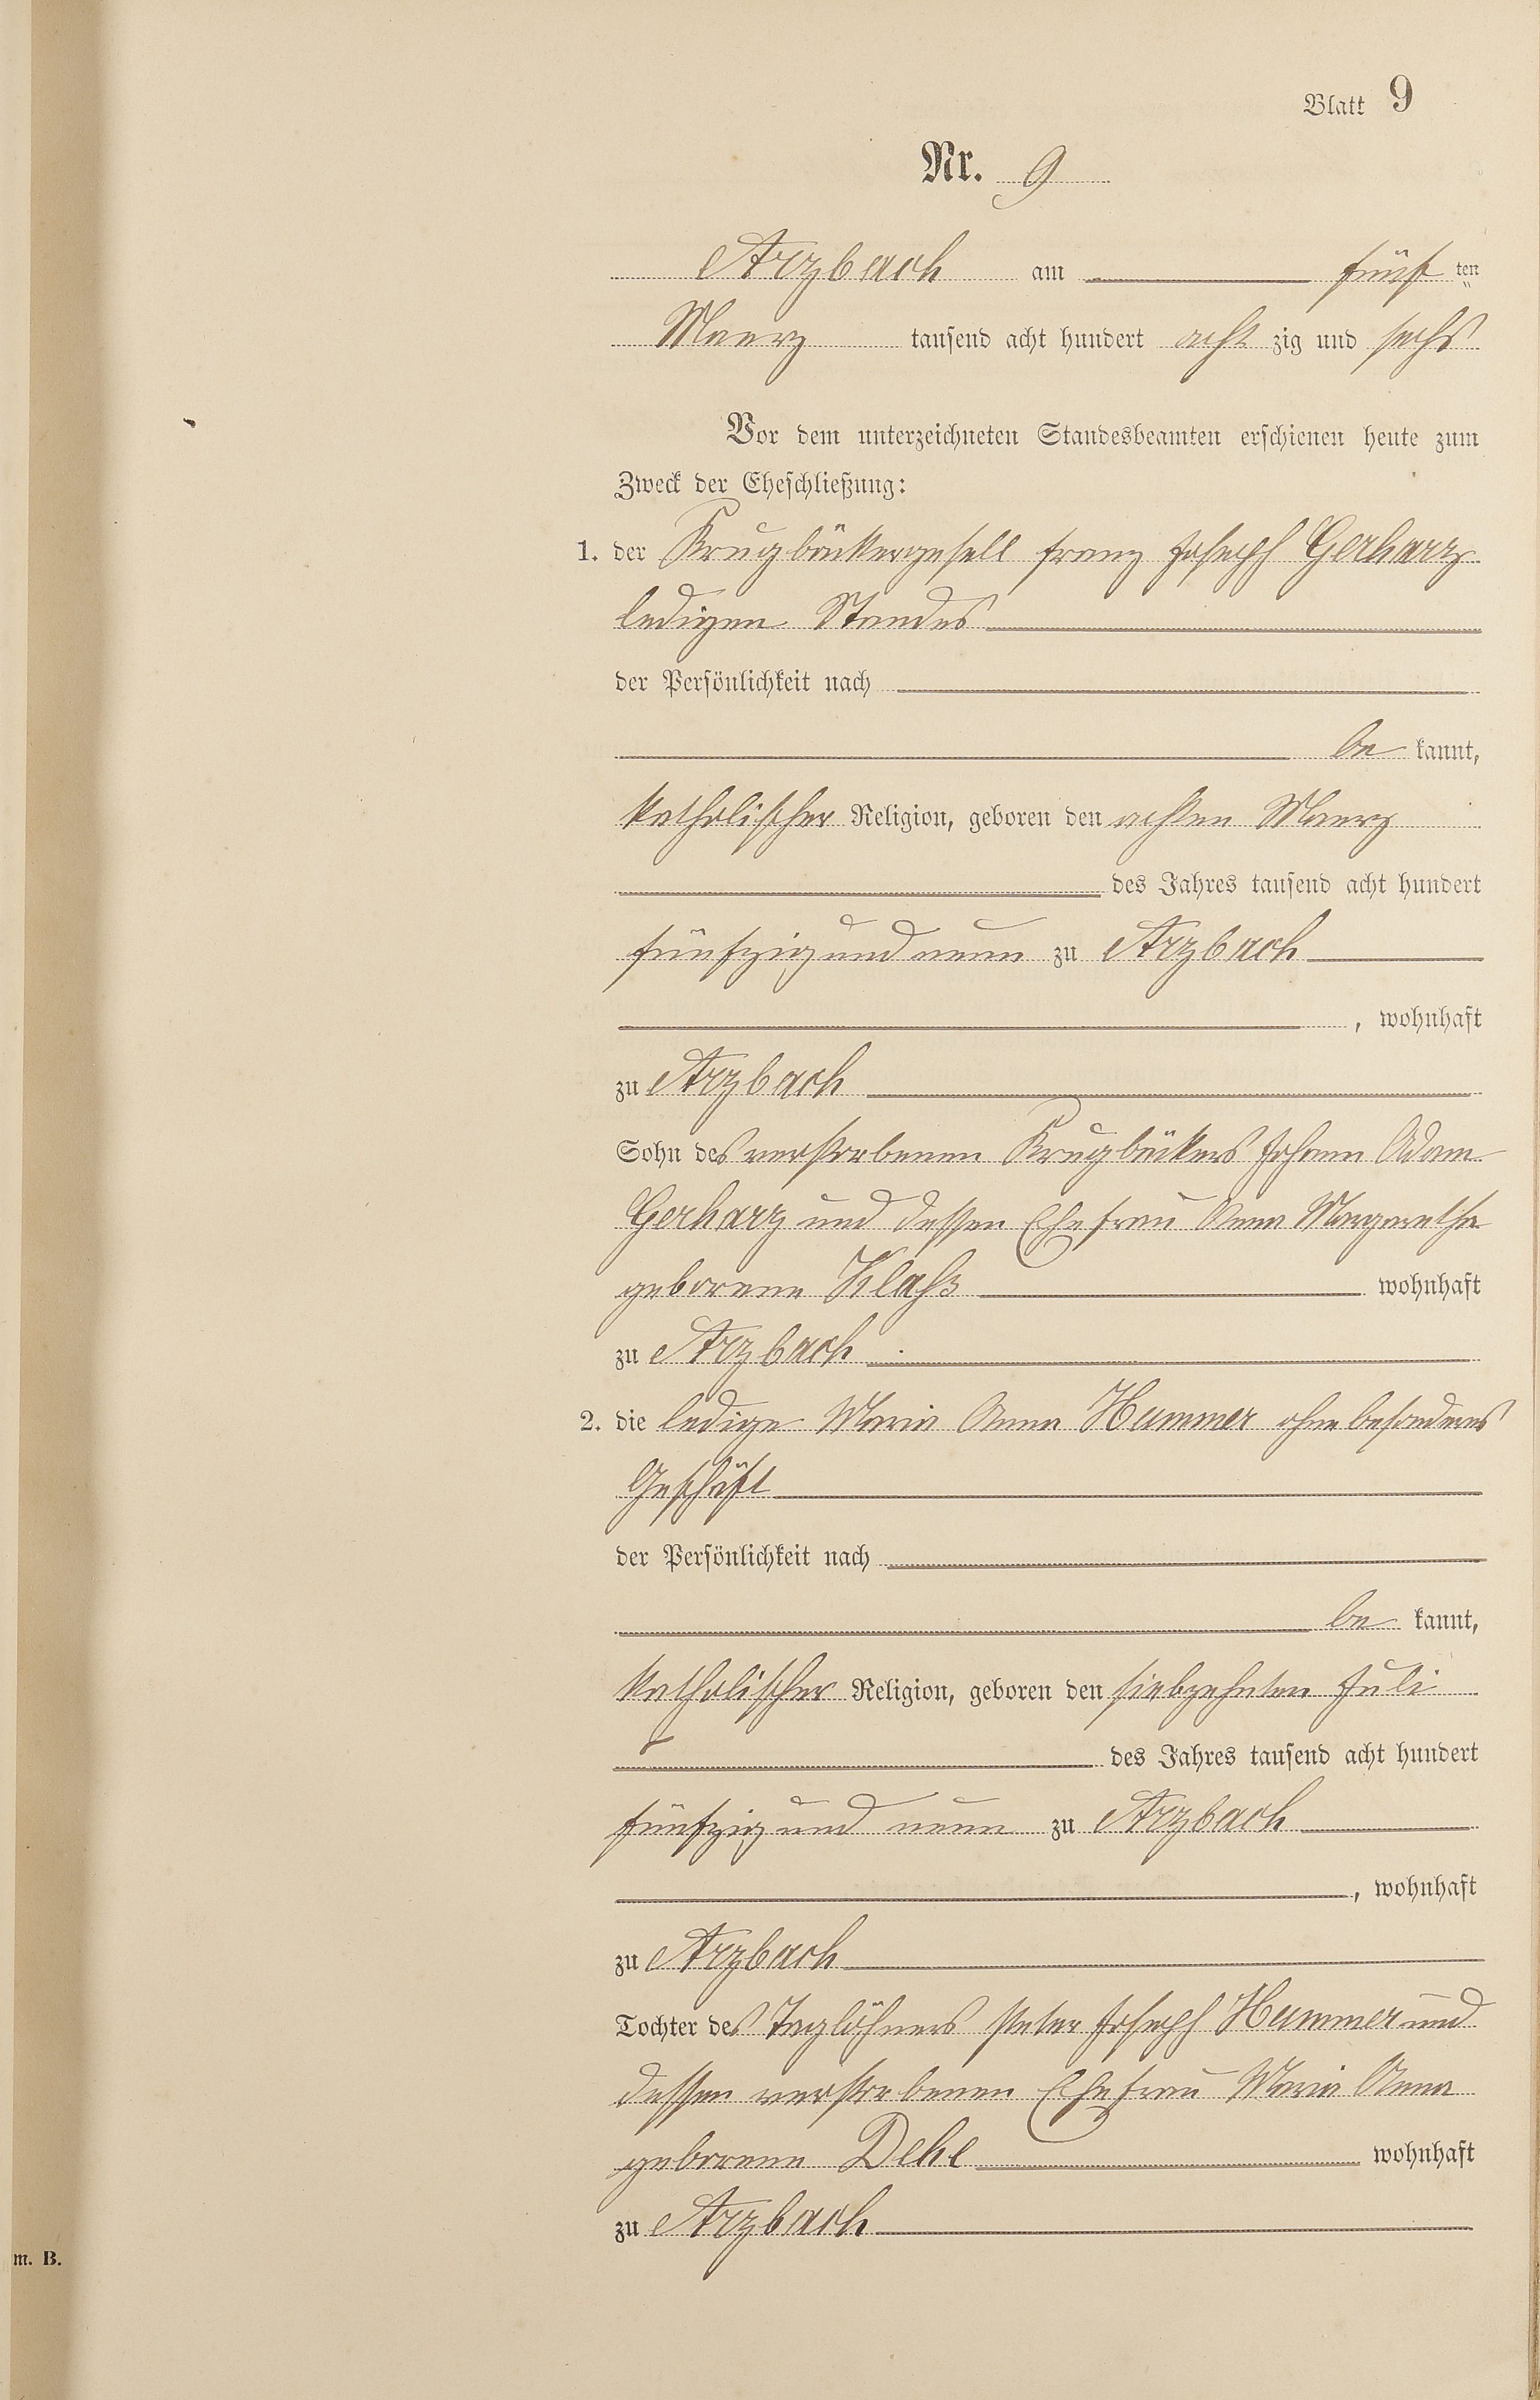 Blatt 9
Nr. 9
Arzbach am fünf ten
Maerz tausend acht hundert acht zig und sechs
Vor dem unterzeichneten Standesbeamten erschienen heute zum
Zweck der Eheschließung:
1. der Krugbäckergesell Franz Joseph Gerharz
ledigen Standes
der Persönlichkeit nach
be kannt,
katholischer Religion, geboren den achten Maerz
des Jahres tausend acht hundert
fünfzig und neun zu Arzbach
, wohnhaft
zu Arzbach
Sohn des verstorbenen Krugbäckers Johann Adam
Gerharz und dessen Ehefrau Anna Margaretha
geborene Klaß wohnhaft
zu Arzbach
2. die ledige Maria Anna Hummer ohne besonderes
Geschäft
der Persönlichkeit nach
be kannt,
katholischer Religion, geboren den siebzehnten Juli
des Jahres tausend acht hundert
fünfzig und neun zu Arzbach
, wohnhaft
zu Arzbach
Tochter des Taglöhners Peter Joseph Hummer und
dessen verstorbenen Ehefrau Maria Anna
geborene Dehe wohnhaft
zu Arzbach
m. B.